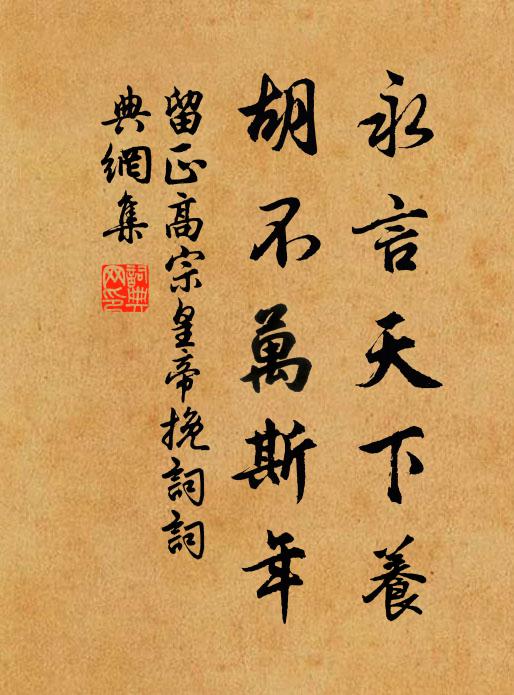 永言天下養
胡不萬斯年
留正高宗皇帝挽詞詞
典網集
詞典网印